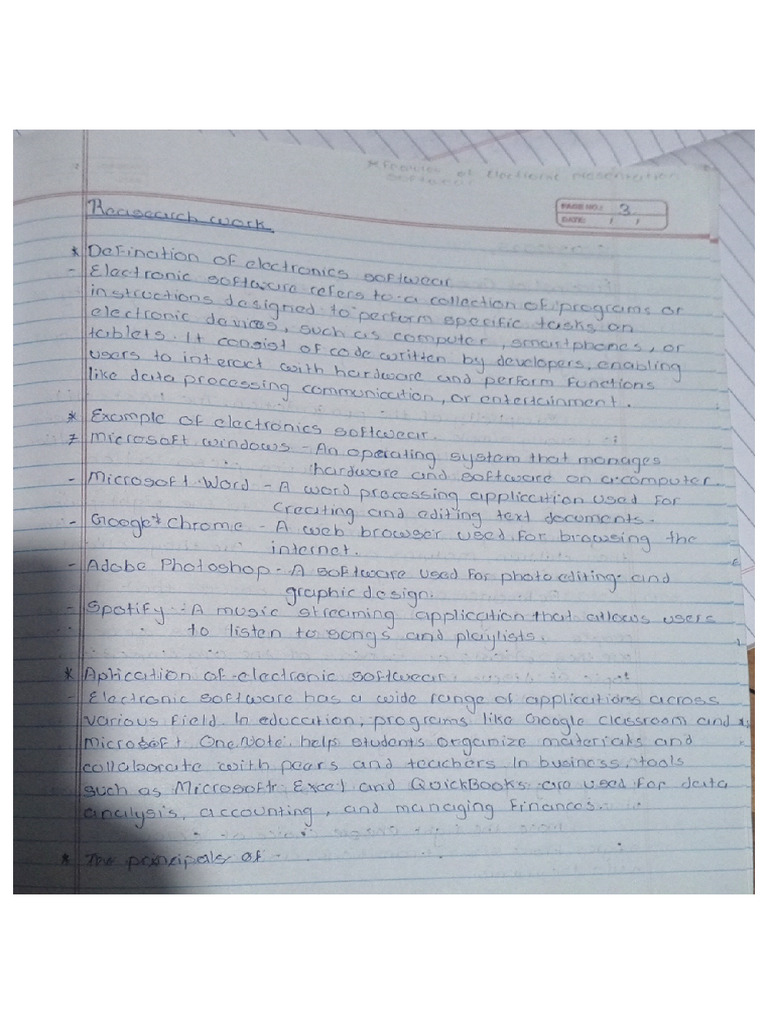 of electronic presentation
PAGE NO.: 3
DATE: / /
Reasearch work
* Defination of electronics softwear
- Electronic software refers to a collection of programs or
instructions designed to perform specific tasks on
electronic devices, such as computer, smartphones, or
tablets. It consist of code written by developers, enabling
users to interact with hardware and perform functions
like data processing communication, or entertainment.
* Example of electronics softwear.
- Microsoft windows - An operating system that manages
hardware and software on a computer.
- Microsoft Word - A word processing application used for
creating and editing text documents.
- Google Chrome - A web browser used for browsing the
internet.
- Adobe Photoshop - A software used for photo editing and
graphic design.
- Spotify - A music streaming application that allows users
to listen to songs and playlists.
* Aplication of electronic softwear
Electronic software has a wide range of applications across
various field. In education, programs like Google classroom and
Microsoft OneNote, help students organize materials and
collaborate with pears and teachers. In business, tools
such as Microsoft Excel and QuickBooks are used for data
analysis, accounting, and managing finances.
* The principals of